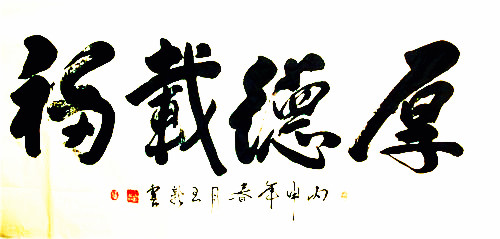 厚德載福
丙申年春月王毅書